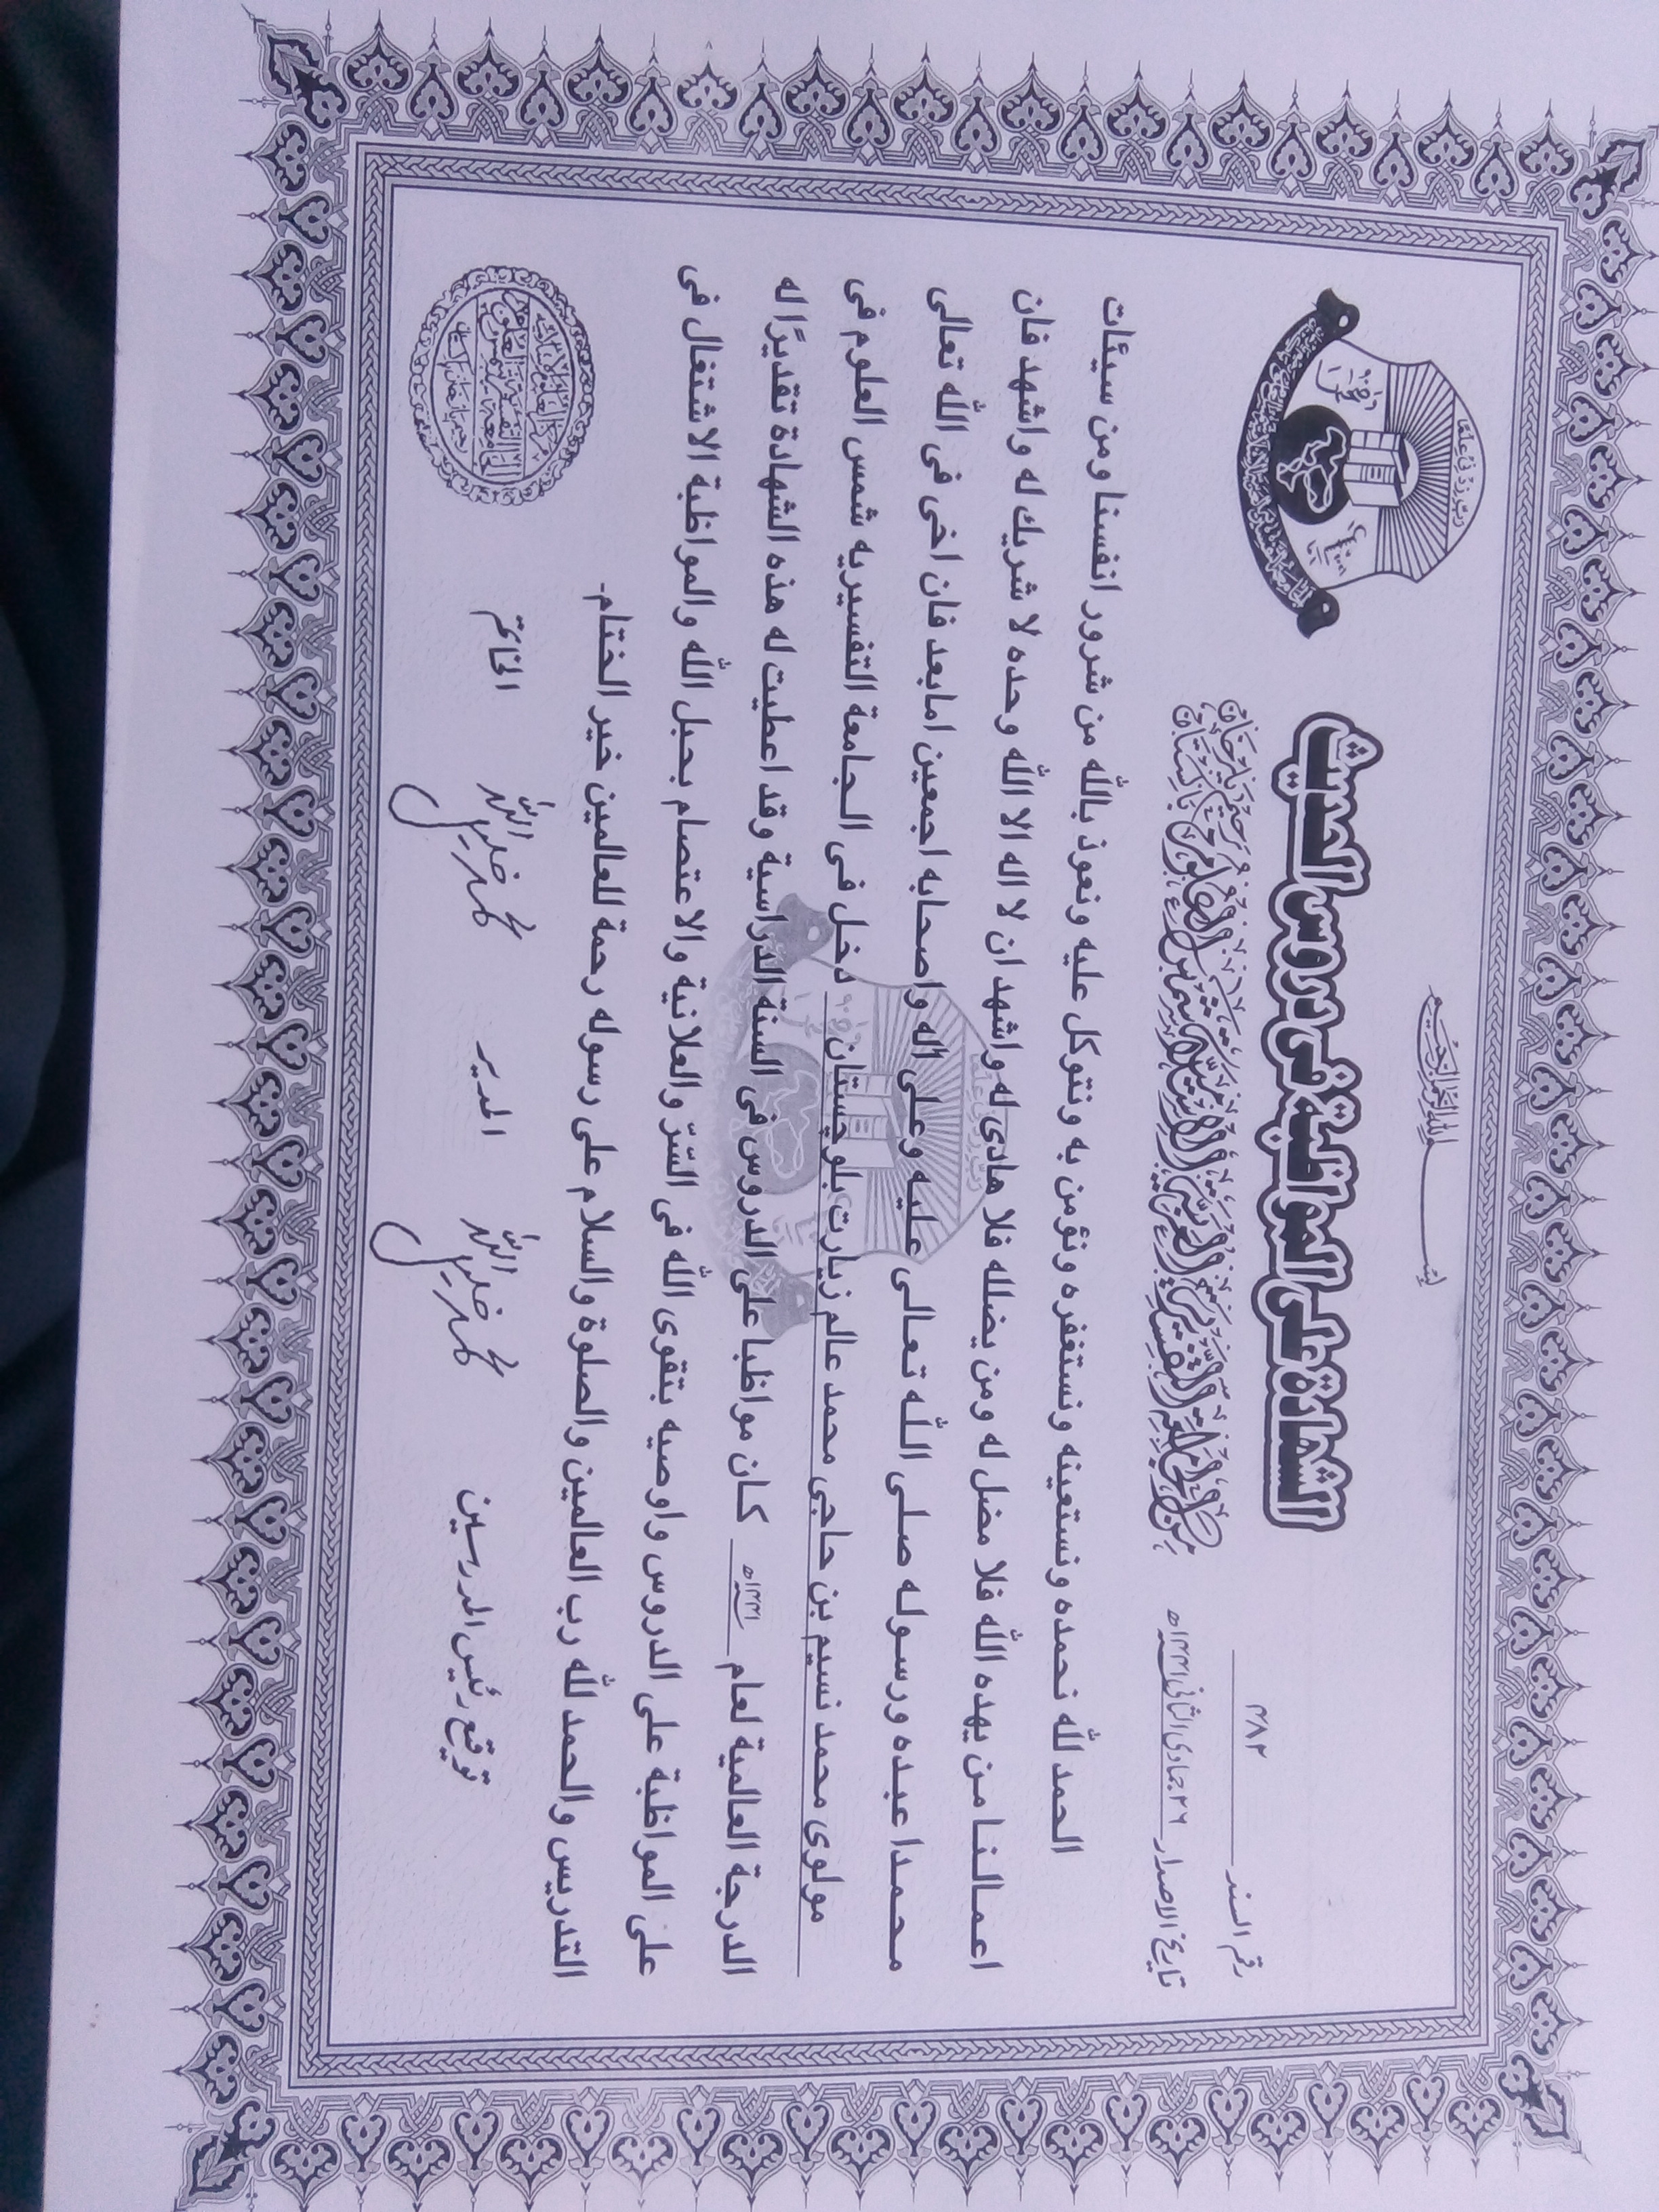 بسم الله الرحمن الرحيم
رب زدنی علما
الشهادة على المواظبة فى دروس الحديث
رقم السند ٤٨٢
تاريخ الاصدار ٢٦ جمادى الثانى ١٤٤١ھ
الحمد لله نحمده ونستعينه ونستغفره ونؤمن به ونتوكل عليه ونعوذ بالله من شرور انفسنا ومن سيئات
اعمالنا من يهده الله فلا مضل له ومن يضلله فلا هادى له واشهد ان لا اله الا الله وحده لا شريك له واشهد فان
محمدا عبده ورسوله صلى الله تعالى عليه وعلى اله واصحابه اجمعين امابعد فان اخى فى الله تعالى
مولوى محمد نسيم بن حاجى محمد عالم زيارت بلوچستان دخل فى الجامعة التفسيريه شمس العلوم فى
الدرجة العالمية لعام ١٤٤١ھ كان مواظبا على الدروس فى السنة الدراسية وقد اعطيت له هذه الشهادة تقديرًا له
على المواظبة على الدروس واوصيه بتقوى الله فى السّرّ والعلانية والاعتصام بحبل الله والمواظبة الاشتغال فى
التدريس والحمد لله رب العالمين والصلوة والسلام على رسوله رحمة للعالمين خير الختام۔
توقيع رئيس المدرسين
المدير
الخاتم